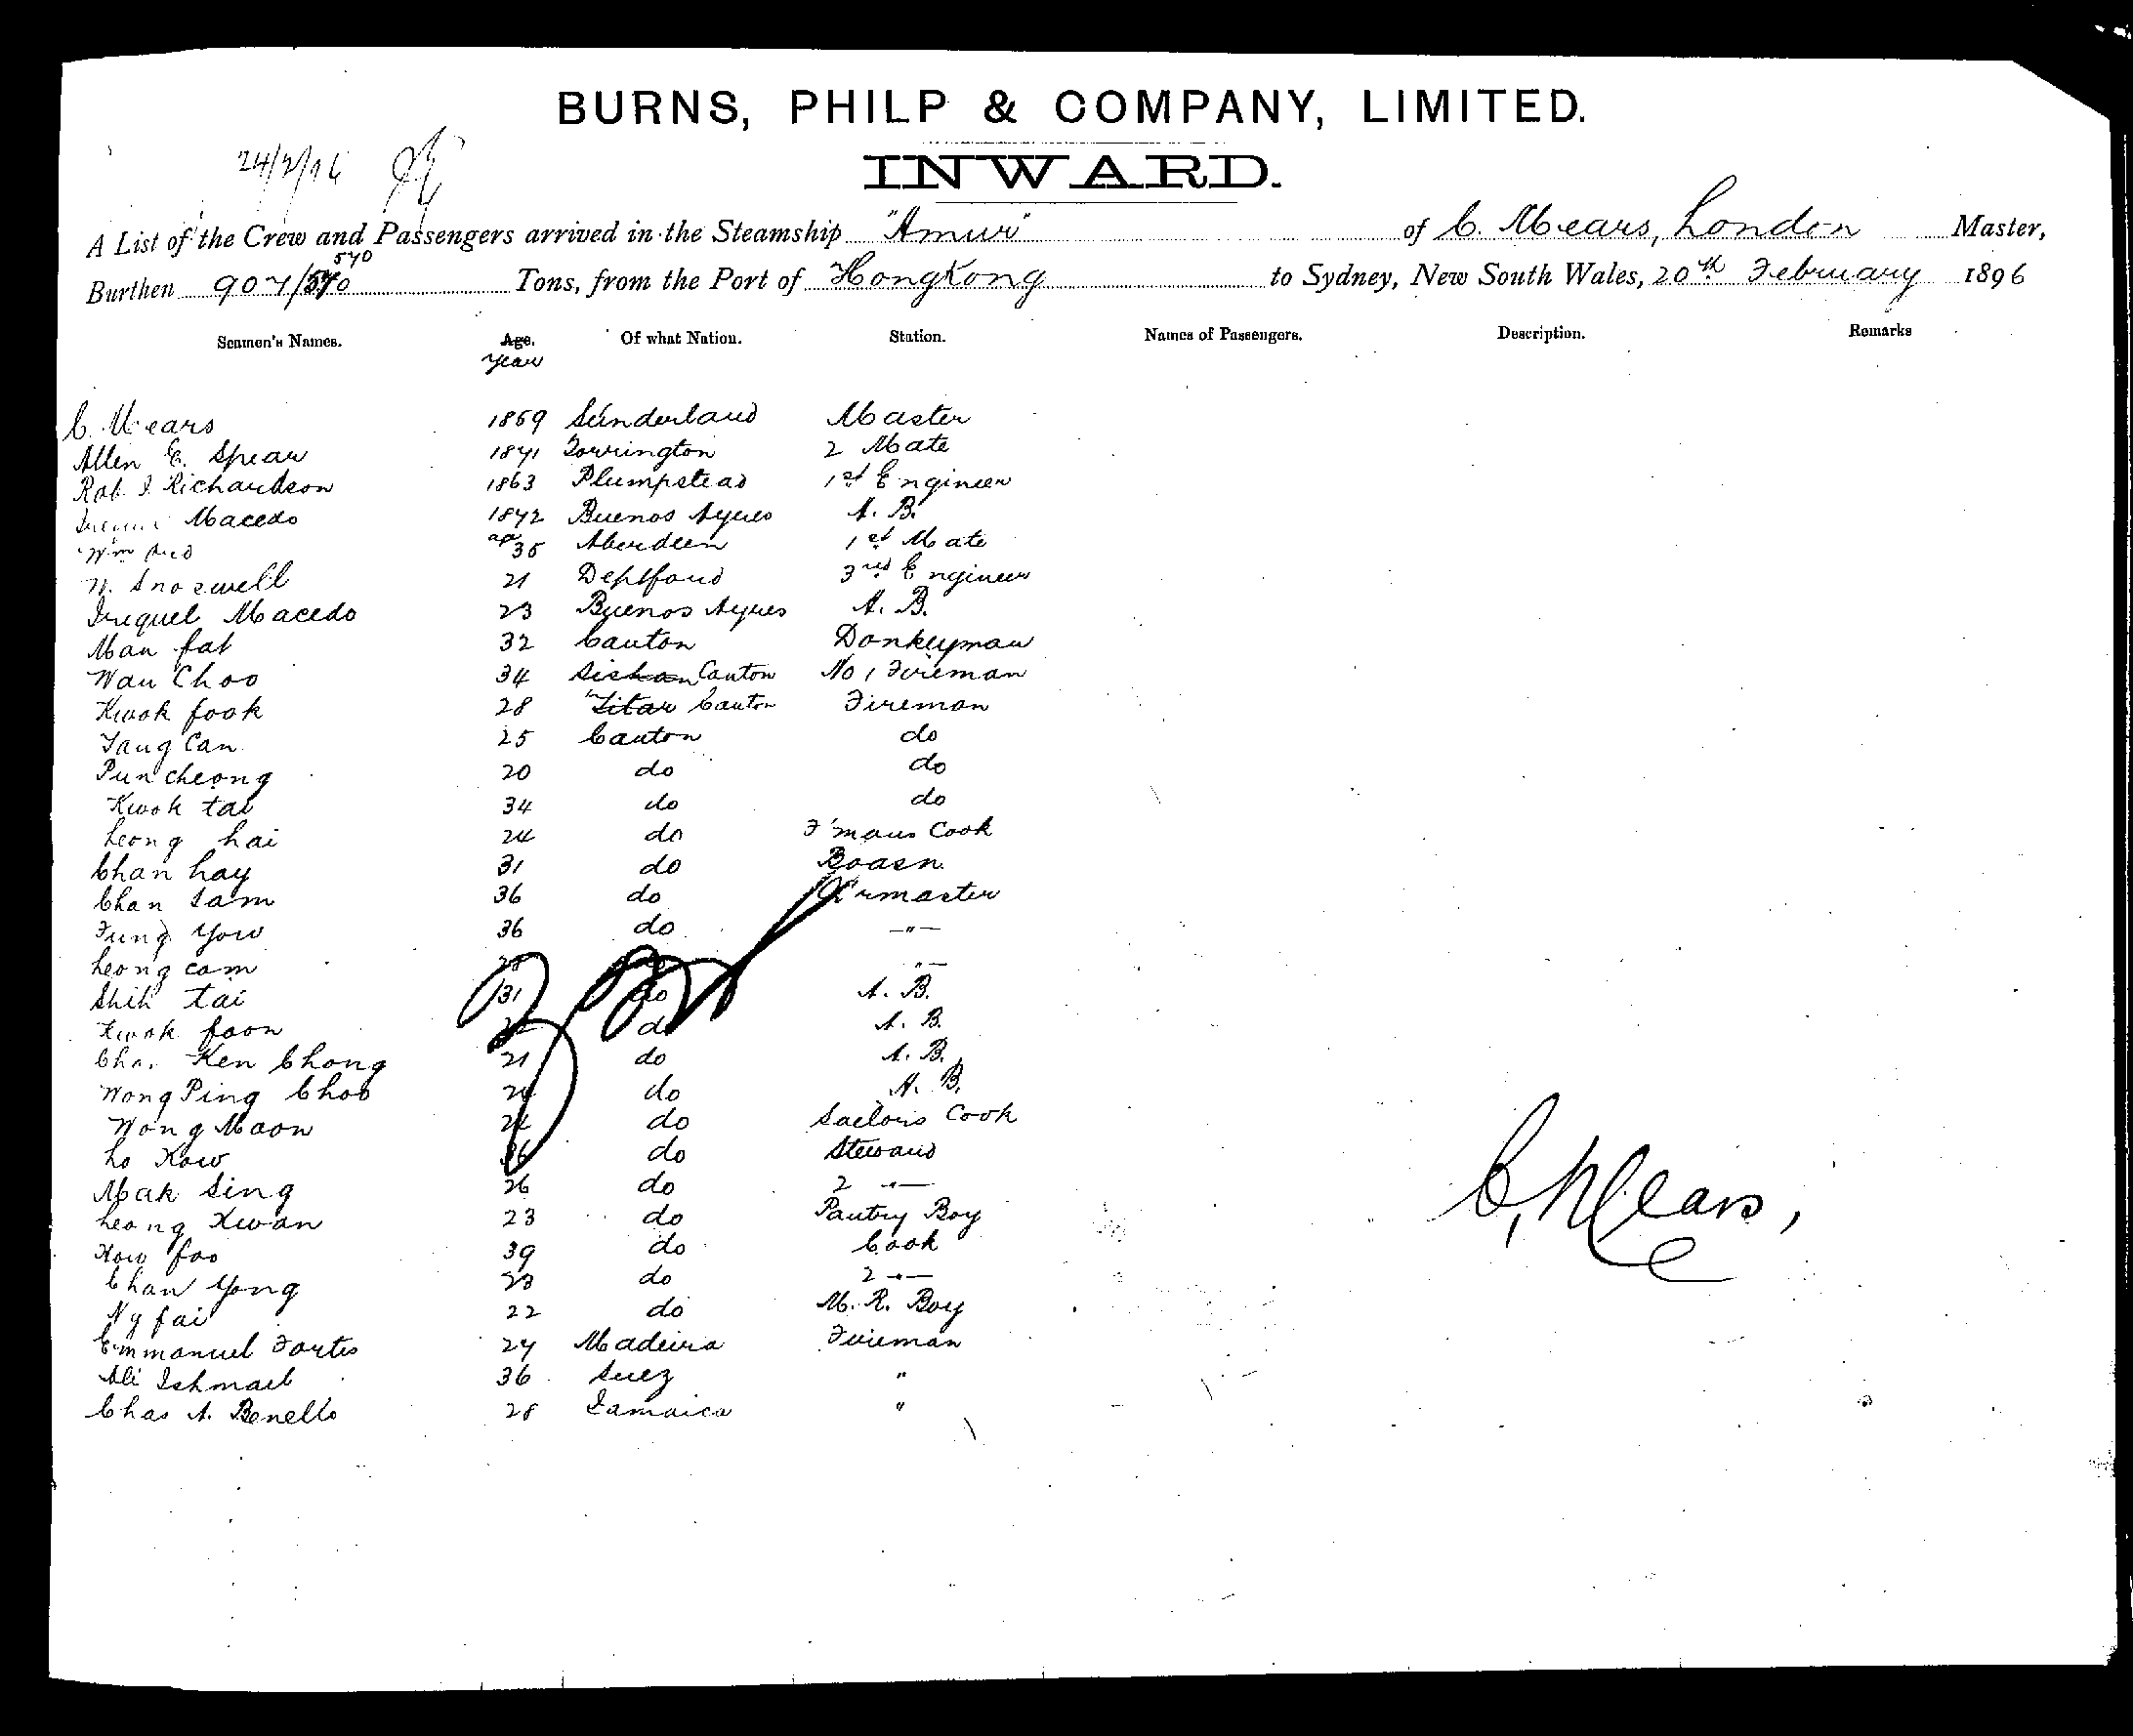 BURNS, PHILP & COMPANY, LIMITED.
24/2/96
INWARD.
A List of the Crew and Passengers arrived in the Steamship "Amur" of C. Mears, London Master,
570
Burthen 907/570 Tons, from the Port of HongKong to Sydney, New South Wales, 20th February 1896
Seamen's Names. Age. Of what Nation. Station. Names of Passengers. Description. Remarks
Year
C. Mears 1859 Sunderland Master
Allen E. Spear 1871 Torrington 2 Mate
Rob. J. Richardson 1863 Plumpstead 1st Engineer
Macedo 1872 Buenos Ayres A. B.
Wm 35 Aberdeen 1st Mate
W. Snoswell 21 Deptford 3rd Engineer
Macedo 23 Buenos Ayres A. B.
Man fat 32 Canton Donkeyman
Wau Choo 34 Canton No 1 Fireman
Kwok fook 28 Canton Fireman
Yang Can 25 Canton do
Pun cheong 20 do do
Kwok tai 34 do do
Leong hai 24 do F'mans Cook
Chan hay 31 do Boasn
Chan Sam 36 do Qrmaster
Fung Yow 36 do —"—
Leong cam 28 do "—
Shih tai 31 do A. B.
Kwok foon do A. B.
Ken Chong 21 do A. B.
Wong Ping Choo 24 do A. B.
Wong Maon 24 do Sailors Cook
Lo Kow 36 do Steward
Mak Sing 26 do 2 —"—
Leong Kwan 23 do Pantry Boy
Kow foo 39 do Cook
Chan Yong 23 do 2 —"—
Ng fai 22 do M. R. Boy
Emmanuel Fortes 27 Madeira Fireman
Ali Ishmael 36 Suez "
Chas A. Benello 28 Jamaica "
C. Mears,